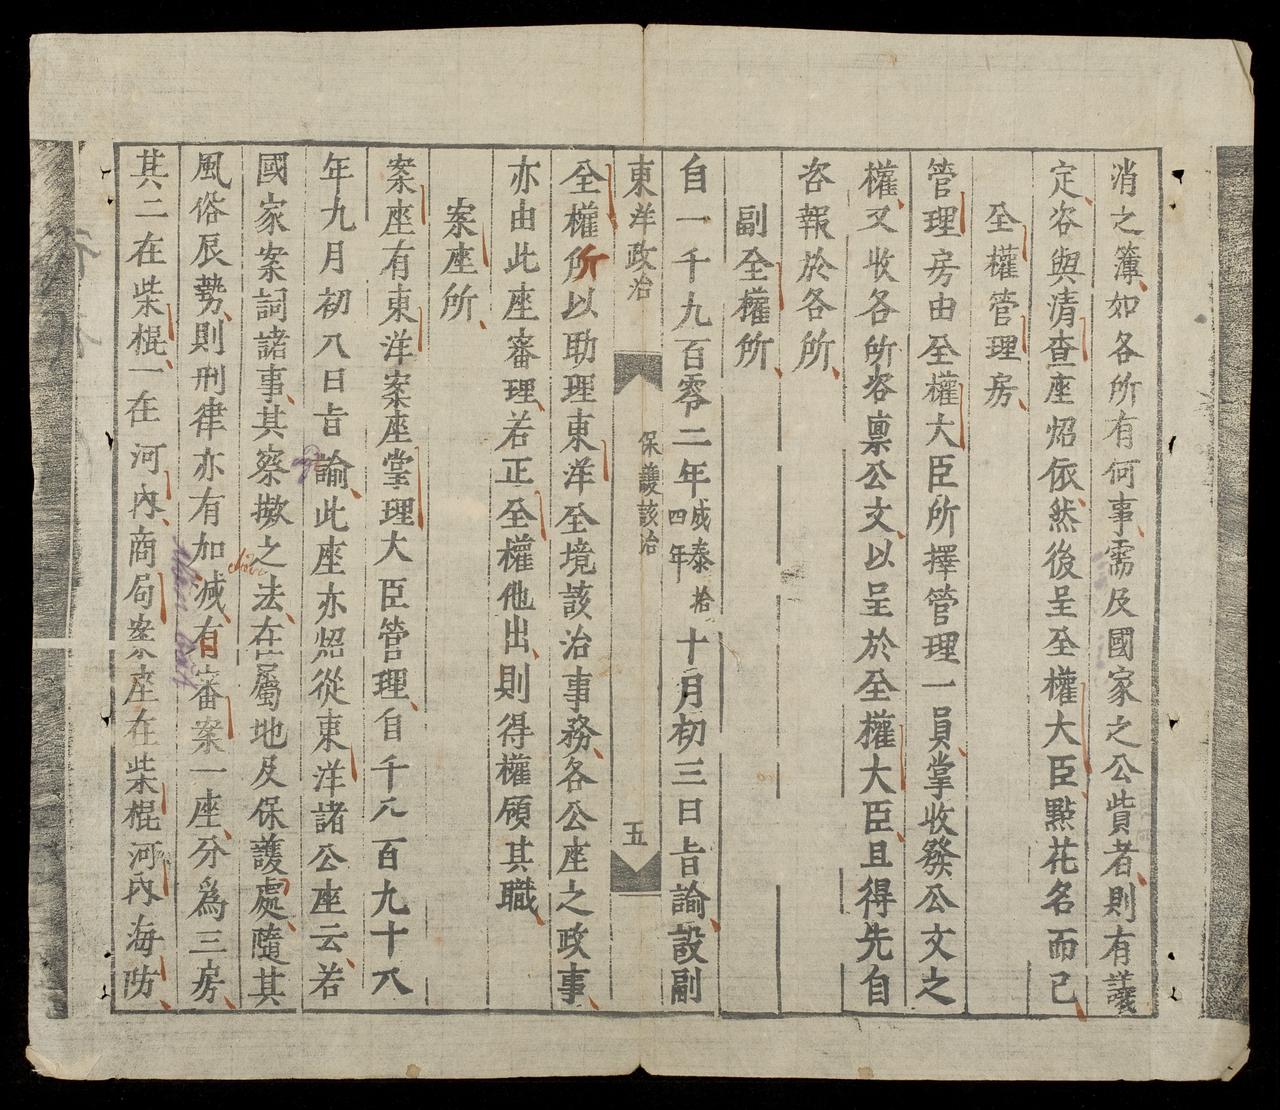 消之簿如各所有何事需及國家之公貲者則有議
定咨與清查座炤依然後呈全權大臣點花名而已
全權管理房
管理房由全權大臣所擇管理一員掌收發公文之
權又收各所咨稟公文以呈於全權大臣且得先自
咨報於各所
副全權所
自一千九百零二年成泰拾四年十月初三日旨諭設副
東洋政治 保護該治 五
全權所以助理東洋全境該治事務各公座之政事
亦由此座審理若正全權他出則得權領其職
案座所
案座有東洋案座掌理大臣管理自千八百九十八
年九月初八日旨諭此座亦炤從東洋諸公座云若
國家案詞諸事其察擬之法在屬地及保護處隨其
風俗辰勢則刑律亦有加減有審案一座分爲三房
其二在柴棍一在河內商局案座在柴棍河內海防